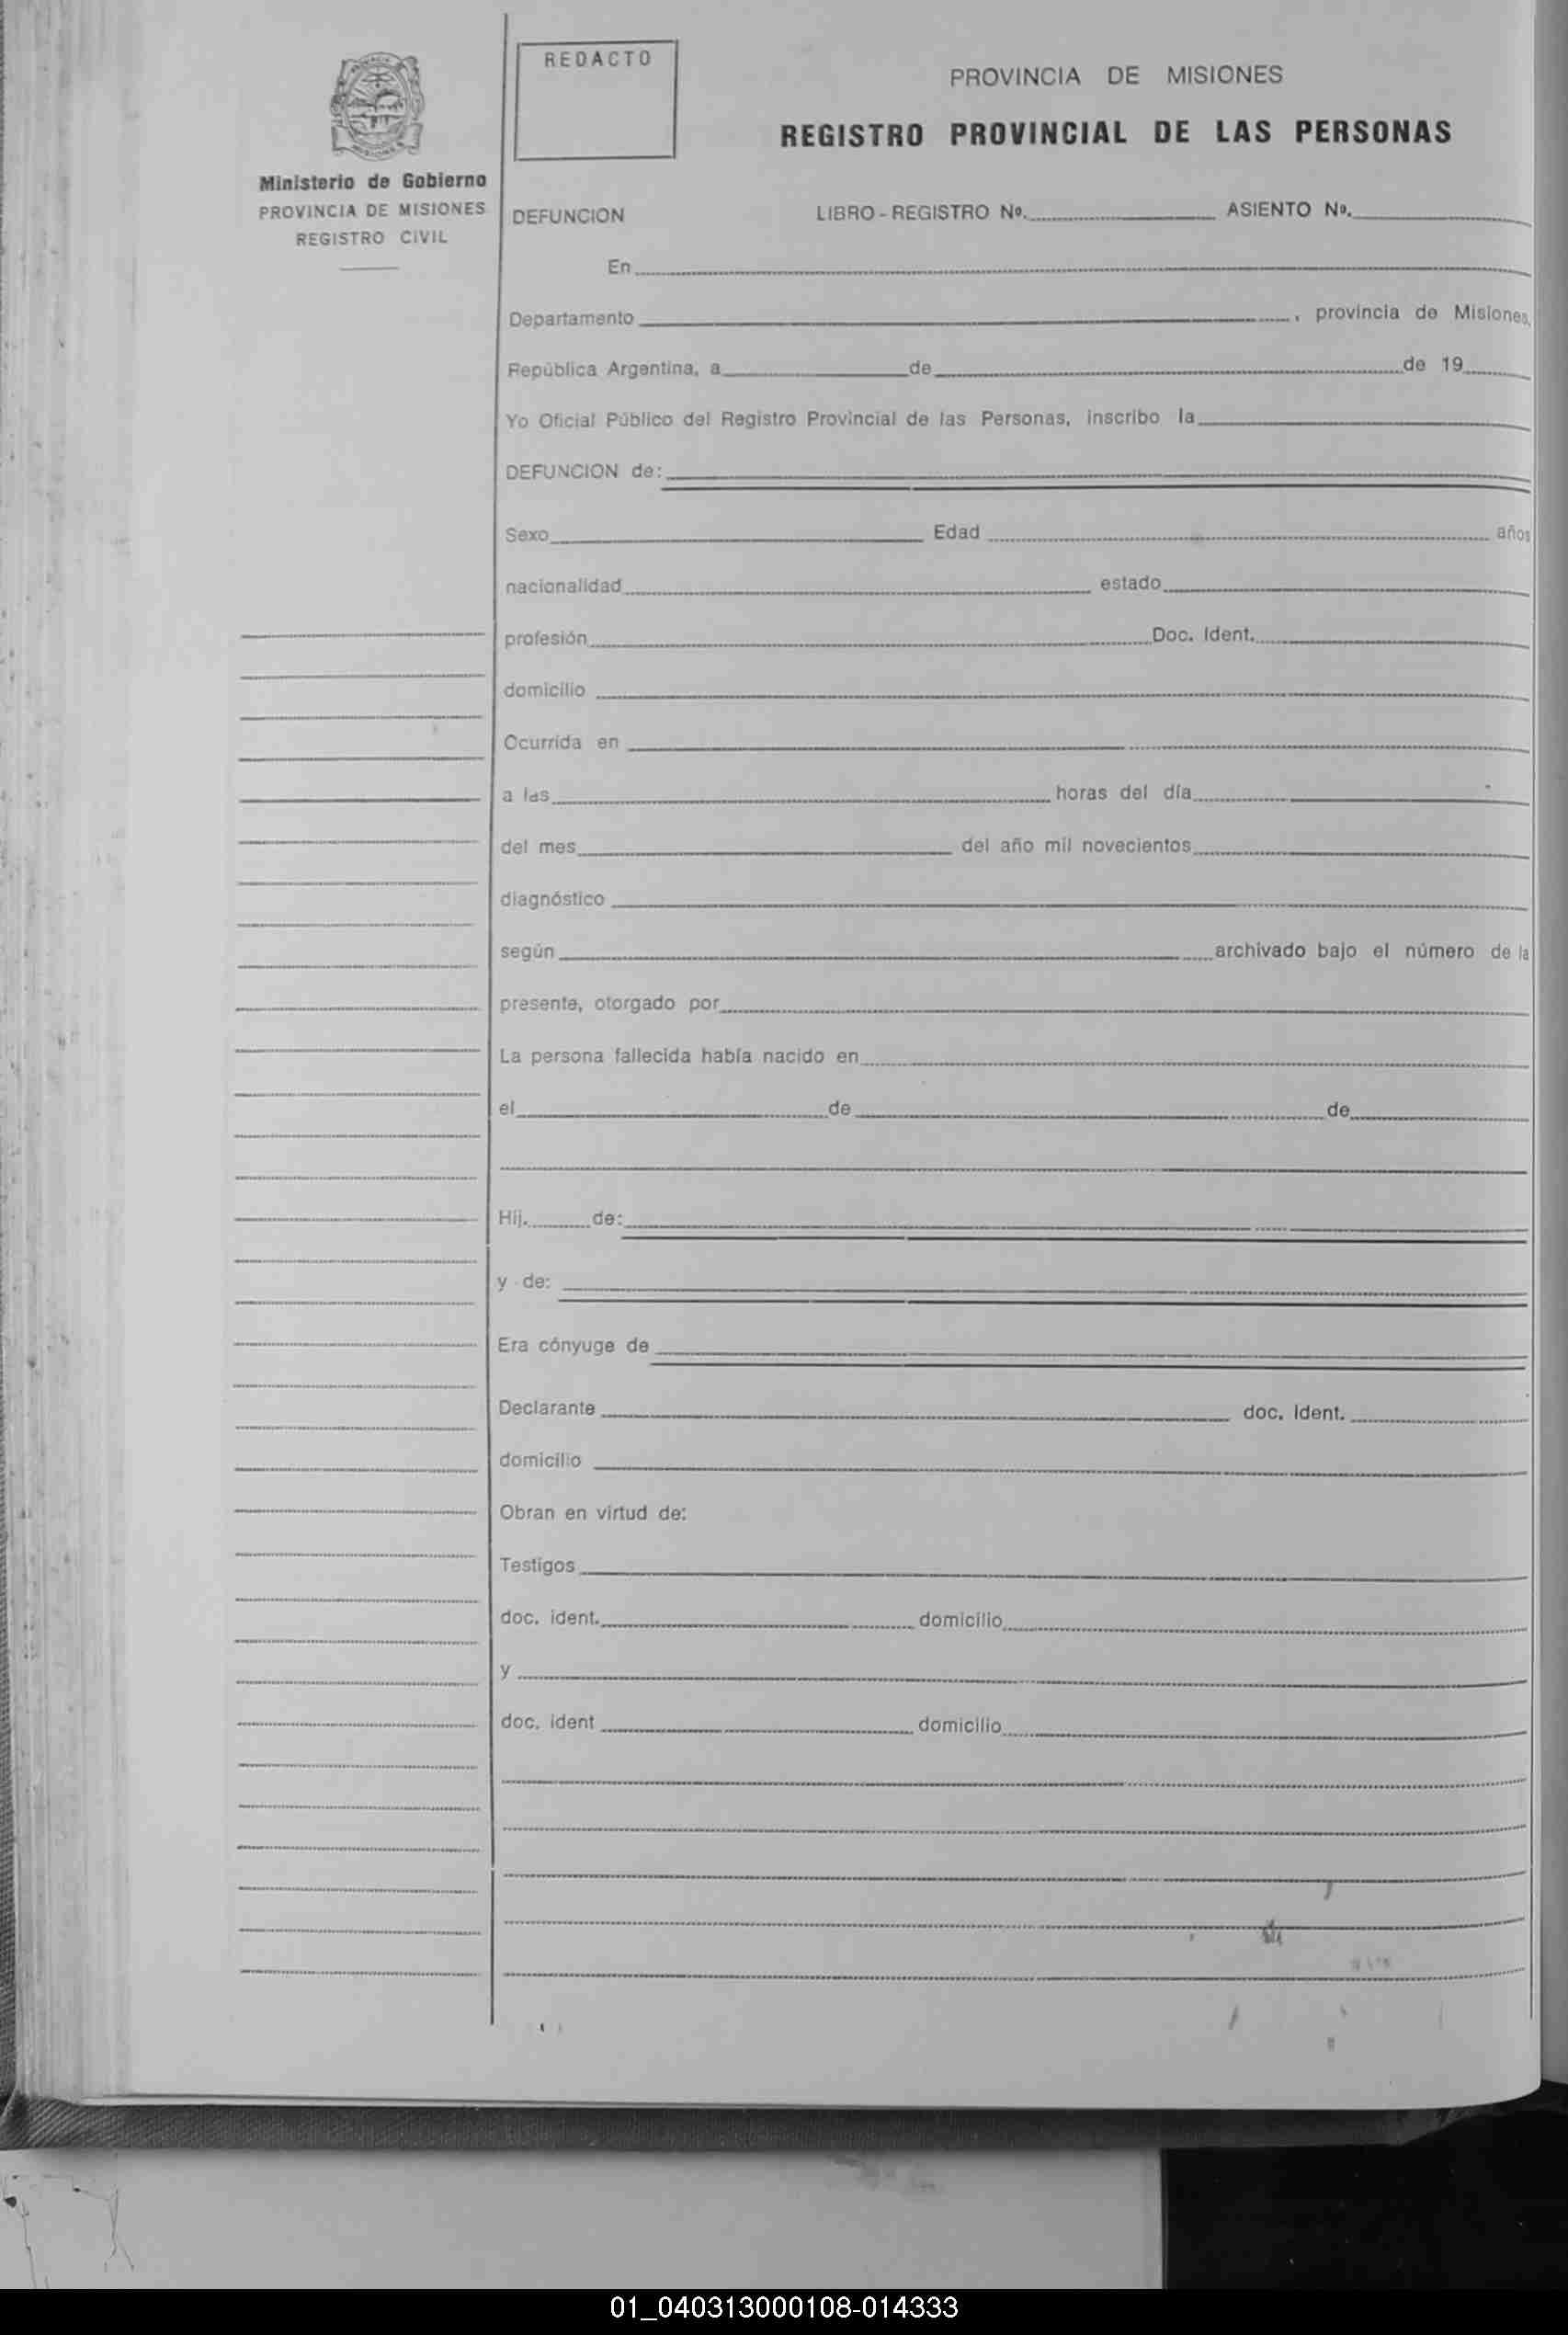 REDACTO
PROVINCIA DE MISIONES
REGISTRO PROVINCIAL DE LAS PERSONAS
Ministerio de Gobierno
PROVINCIA DE MISIONES
REGISTRO CIVIL
DEFUNCION LIBRO - REGISTRO Nº. ASIENTO Nº.
En
Departamento , provincia de Misiones,
República Argentina, a de de 19
Yo Oficial Público del Registro Provincial de las Personas, inscribo la
DEFUNCION de:
Sexo Edad años
nacionalidad estado
profesión Doc. Ident.
domicilio
Ocurrida en
a las horas del día
del mes del año mil novecientos
diagnóstico
según archivado bajo el número de la
presente, otorgado por
La persona fallecida había nacido en
el de de
Hij. de:
y de:
Era cónyuge de
Declarante doc. Ident.
domicilio
Obran en virtud de:
Testigos
doc. ident. domicilio
y
doc. ident domicilio
01_040313000108-014333